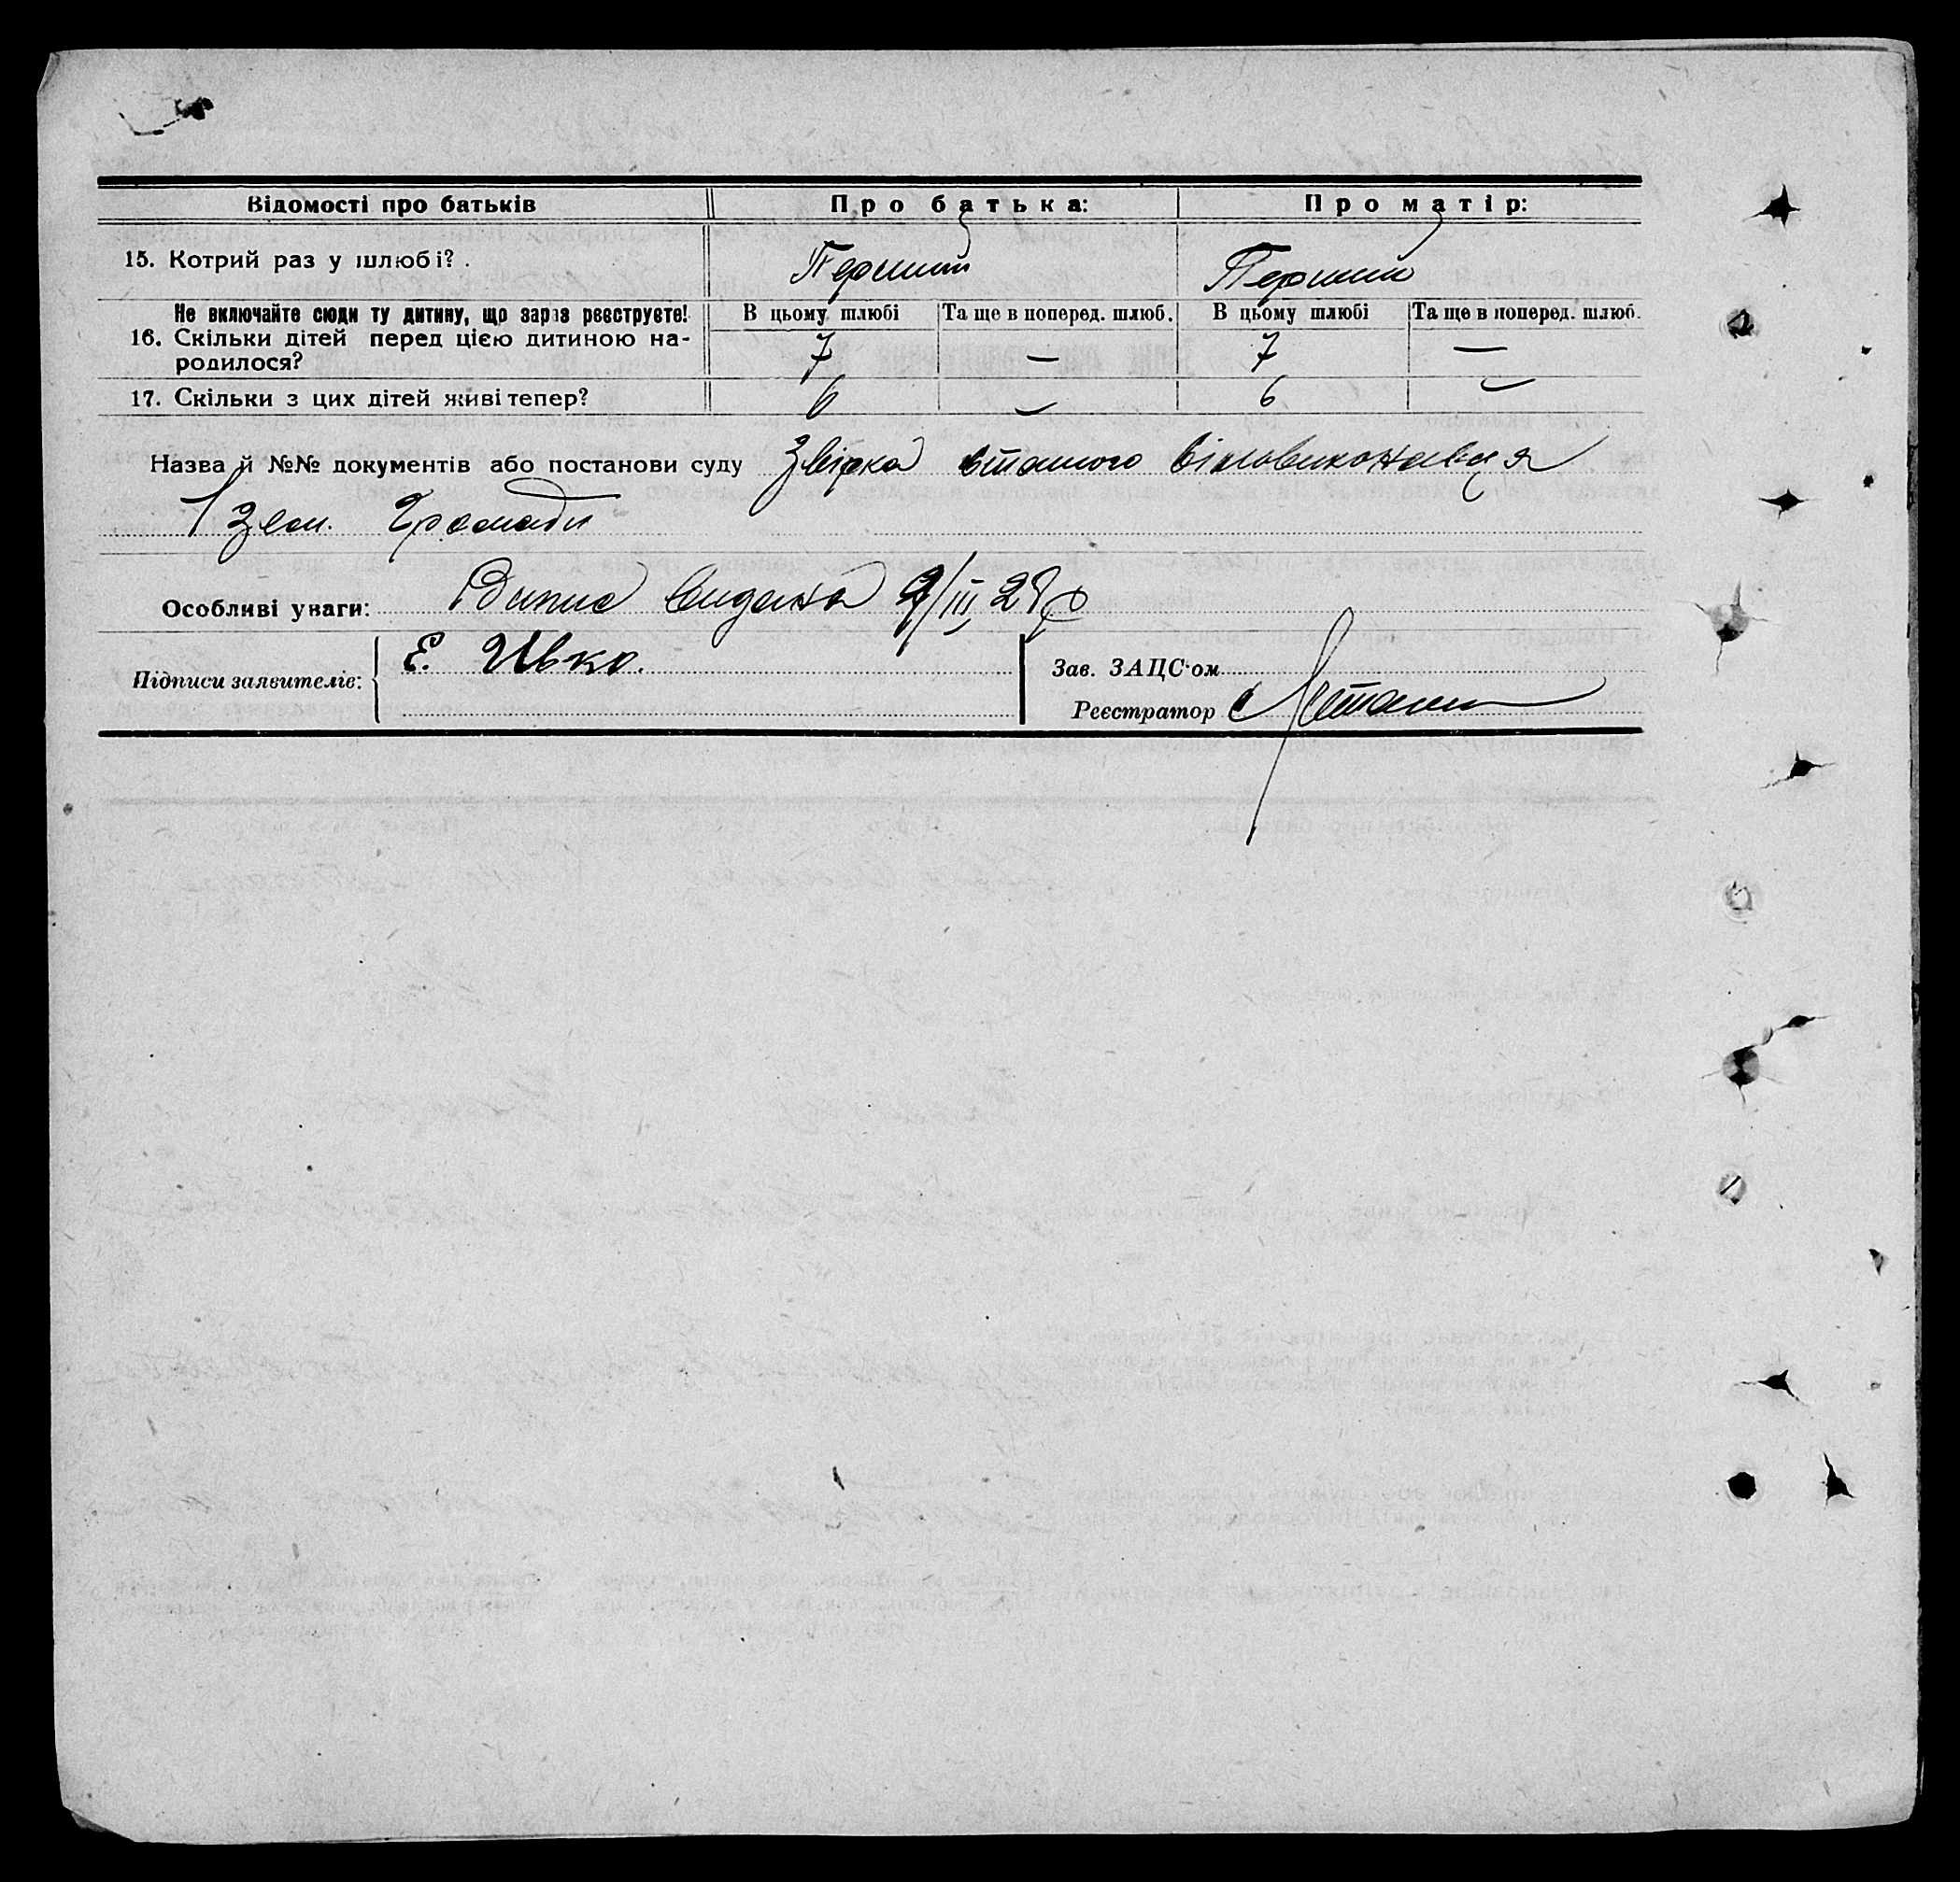 Відомості про батьків Про батька: Про матір:
15. Котрий раз у шлюбі? Перший Перший
Не включайте сюди ту дитину, що зараз реєструєте! В цьому шлюбі Та ще в поперед. шлюб. В цьому шлюбі Та ще в поперед. шлюб.
16. Скільки дітей перед цією дитиною на-
родилося? 7 — 7 —
17. Скільки з цих дітей живі тепер? 6 — 6 —
Назва й №№ документів або постанови суду Звірка виконавця
1 Зем. Громади
Особливі уваги: Випис видана 9/III 28р
Підписи заявителів: Е. Ивко. Зав. ЗАЦС'ом
Реєстратор